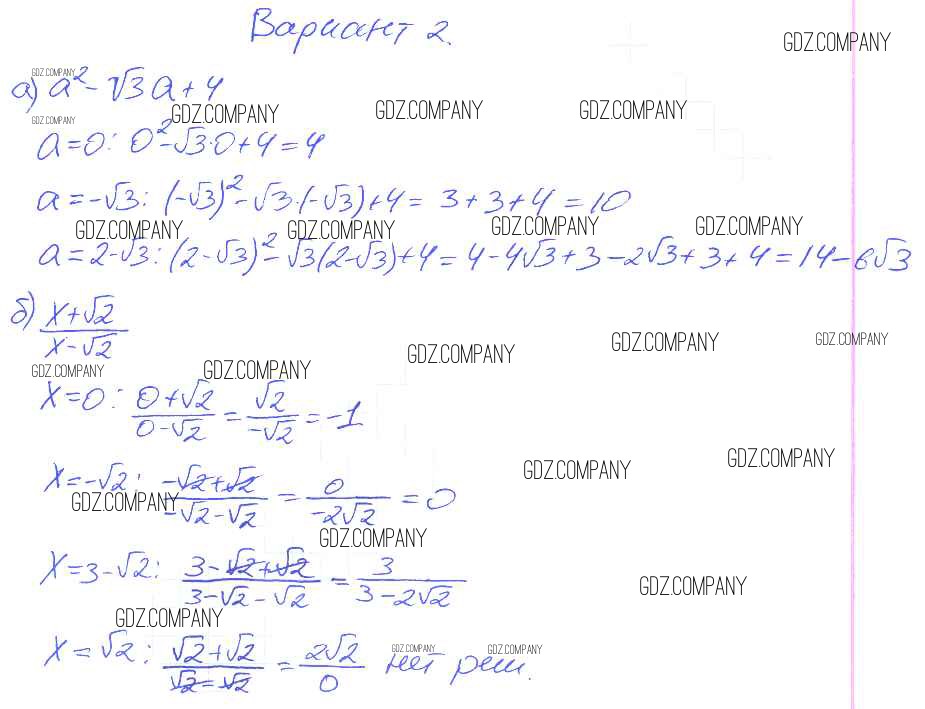 Вариант 2.
GDZ.COMPANY
GDZ.COMPANY
а) a² - √3 a + 4
GDZ.COMPANY GDZ.COMPANY GDZ.COMPANY GDZ.COMPANY
a = 0: 0² - √3·0 + 4 = 4
a = -√3: (-√3)² - √3·(-√3) + 4 = 3 + 3 + 4 = 10
GDZ.COMPANY GDZ.COMPANY GDZ.COMPANY GDZ.COMPANY
a = 2-√3: (2-√3)² - √3(2-√3) + 4 = 4 - 4√3 + 3 - 2√3 + 3 + 4 = 14 - 6√3
б) (x+√2)/(x-√2)
GDZ.COMPANY GDZ.COMPANY GDZ.COMPANY GDZ.COMPANY GDZ.COMPANY
x = 0: (0+√2)/(0-√2) = √2/(-√2) = -1
GDZ.COMPANY GDZ.COMPANY
x = -√2: (-√2+√2)/(-√2-√2) = 0/(-2√2) = 0
GDZ.COMPANY
GDZ.COMPANY
x = 3-√2: (3-√2+√2)/(3-√2-√2) = 3/(3-2√2)
GDZ.COMPANY
GDZ.COMPANY
GDZ.COMPANY GDZ.COMPANY
x = √2: (√2+√2)/(√2-√2) = 2√2/0 нет реш.